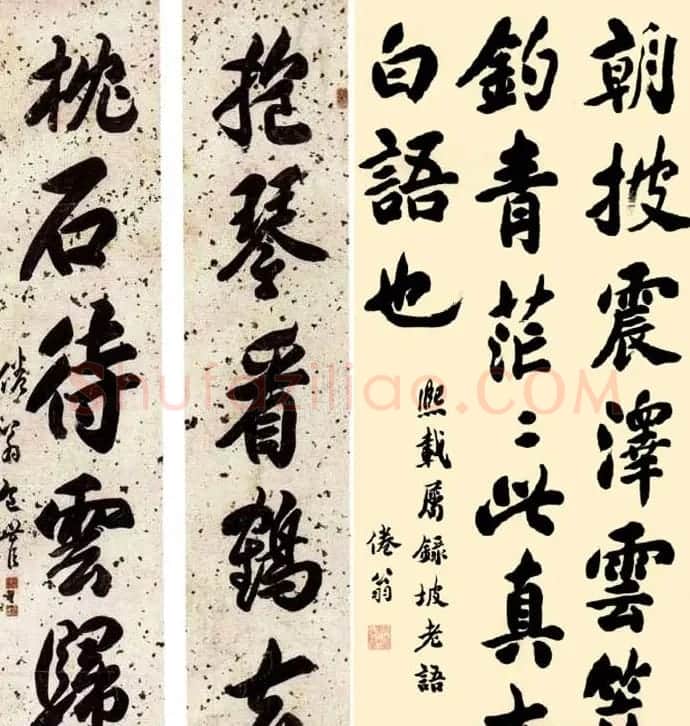 朝披震澤雲
釣青茫〻此真
白語也
熙載屬録坡老語
倦翁
抱琴看鶴去
枕石待雲歸
倦翁包世臣
Shufaziliao.COM